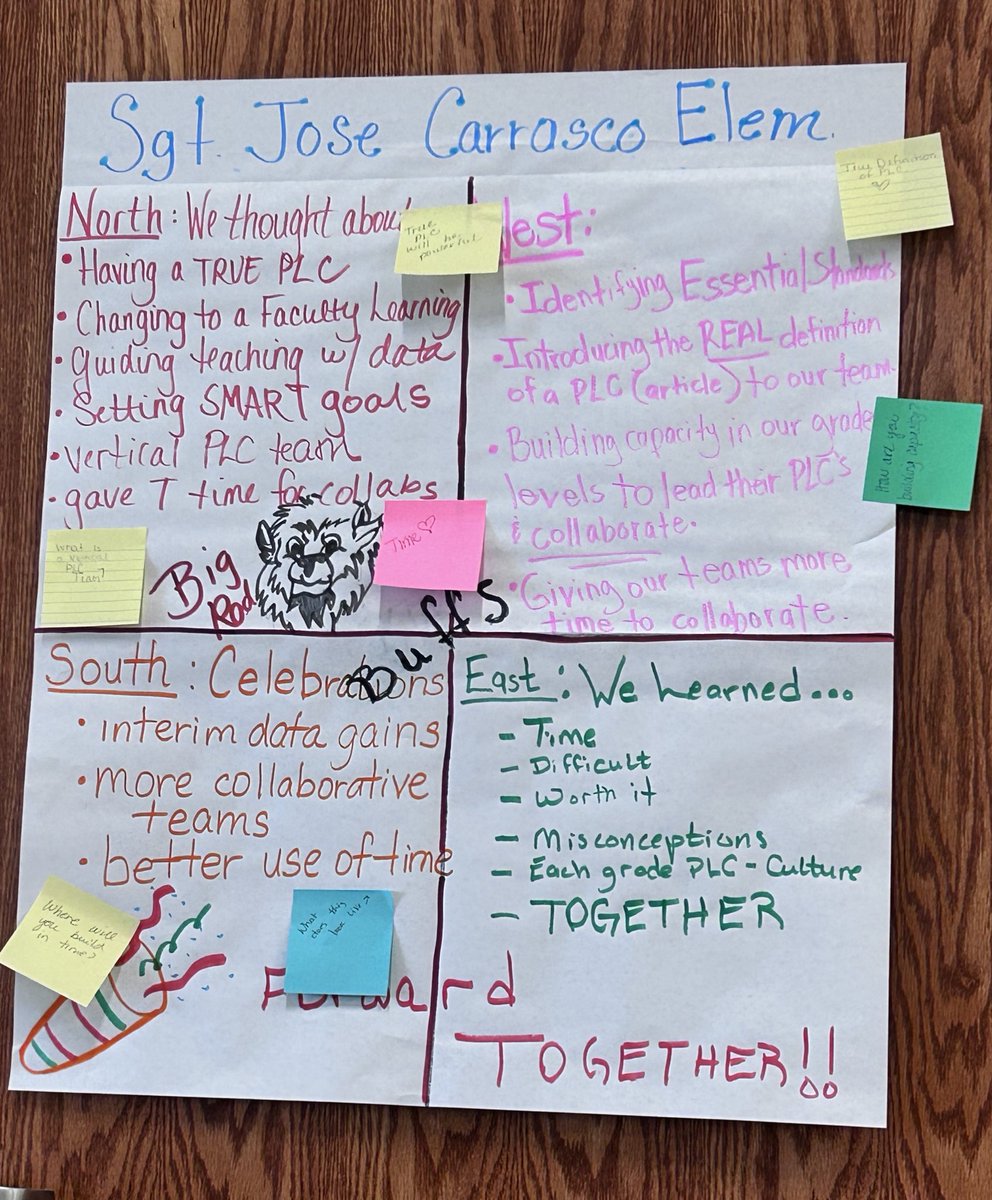 Sgt. Jose Carrasco Elem.
North: We thought abou
True
PLC
will be
powerful
• Having a TRUE PLC
• Changing to a Faculty Learning
• Guiding teaching w/ data
• Setting SMART goals
• vertical PLC team
• gave T time for collabs
What is
a Vertical
PLC
Team?
Big
Rod
Time ♡
Buffs
est:
True Definition
of PLC
♡
• Identifying Essential Standards
• Introducing the REAL definition
of a PLC (article) to our team.
• Building capacity in our grade
levels to lead their PLC's
& collaborate.
How are you
building capacity?
• Giving our teams more
time to collaborate.
South: Celebrations
• interim data gains
• more collaborative
teams
• better use of time
Where will
you build
in time?
What this
look like?
East: We Learned...
- Time
- Difficult
- Worth it
- Misconceptions
- Each grade PLC - Culture
- TOGETHER
Forward
TOGETHER!!